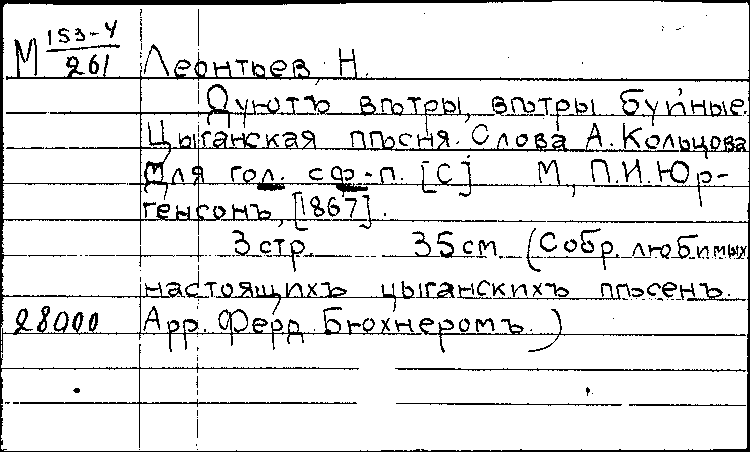 М 153-4/261 Леонтьев, Н.
Дуютъ вѣтры, вѣтры буйные.
Цыганская пѣсня. Слова А. Кольцова
Для гол. с ф.-п. [С] М., П.И. Юр-
генсонъ, [1867].
3 стр. 35 см (Собр. любимых
настоящихъ цыганскихъ пѣсенъ.
28000 Арр. Ферд. Бюхнеромъ.)